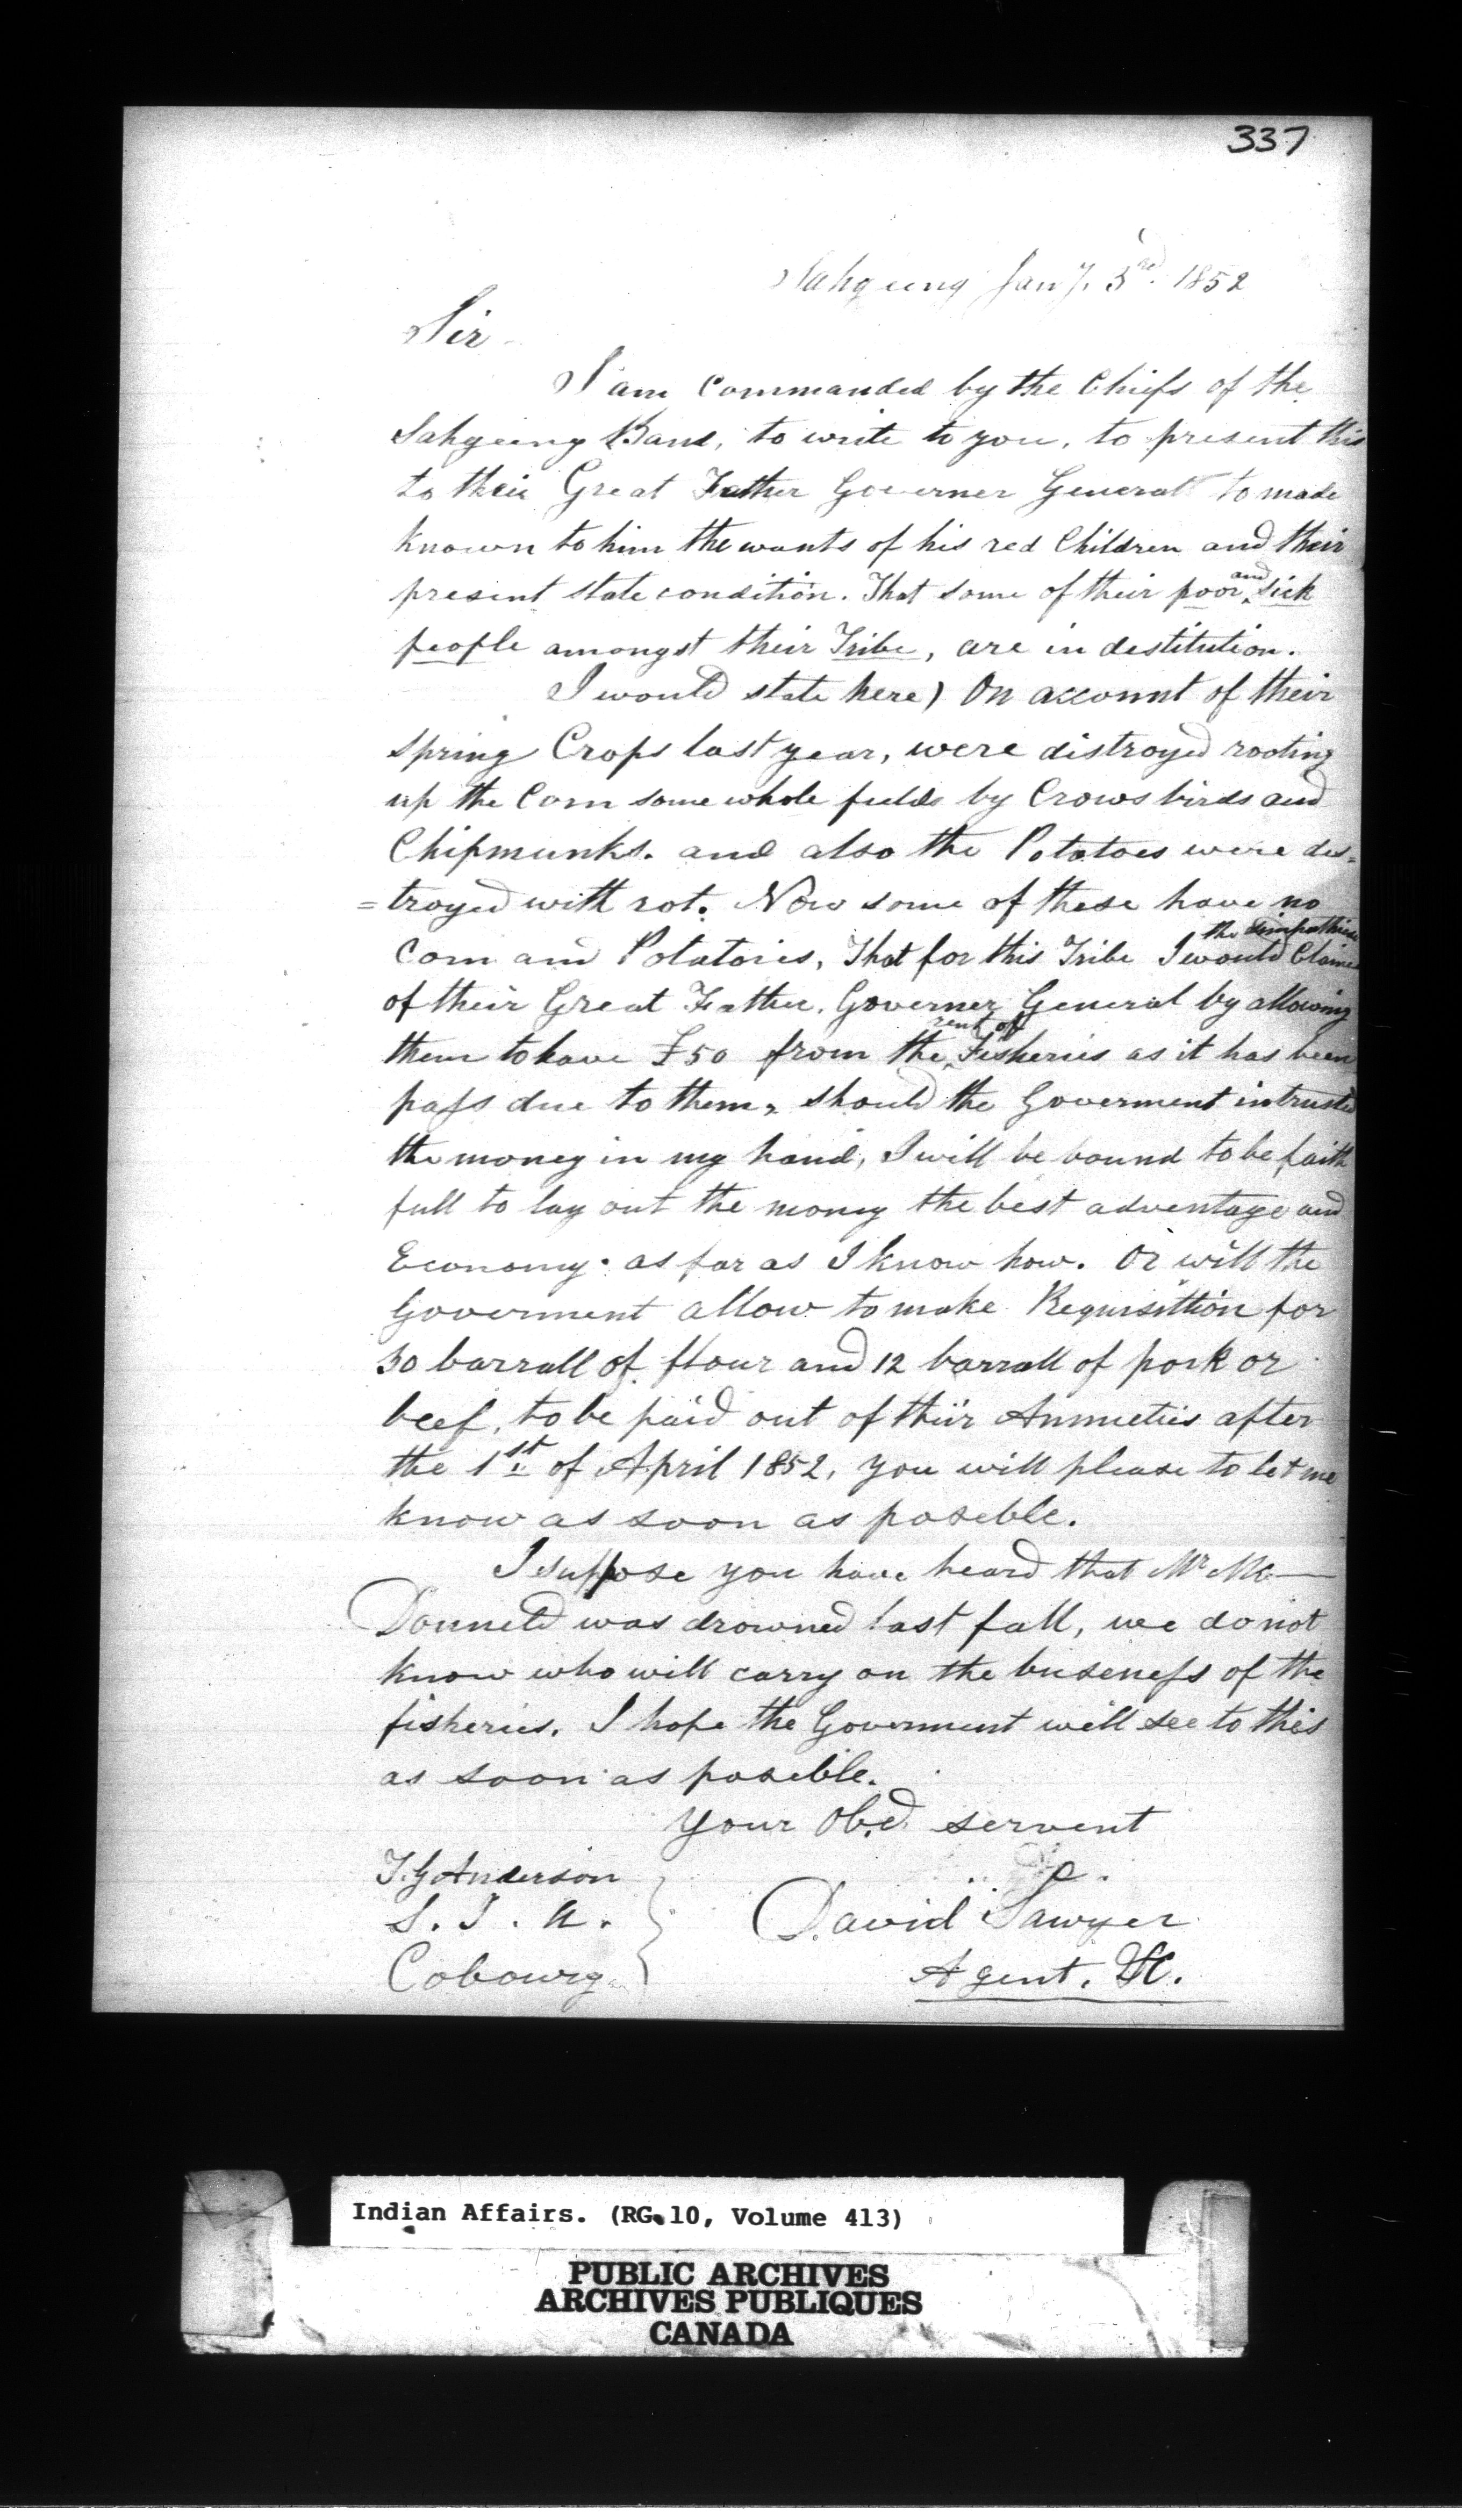 337
Sahgeeng Jany. 3rd. 1852
Sir
I am Commanded by the Chiefs of the
Sahgeeng Band, to write to you, to present this
to their Great Father Governer General to made
known to him the wants of his red Children and their
present state condition. That some of their poor and sick
people amongst their Tribe, are in destitution.
I would state here) On account of their
spring Crops last year, were distroyed rooting
up the Corn some whole fields by Crows birds and
Chipmunks. and also the Potatoes were des=
=troyed with rot. Now some of these have no
Corn and Potatoies, That for this Tribe I would Claime the simpathies
of their Great Father, Governer General by allowing
them to have £50 from the rent of Fisheries as it has been
pass due to them, should the Goverment intrusted
the money in my hand, I will be bound to be faith
full to lay out the money the best adventage and
Economy. as far as I know how. Or will the
Goverment allow to make Requisittion for
30 barrall of flour and 12 barrall of pork or
beef, to be paid out of their Annueties after
the 1st of April 1852, you will please to let me
know as soon as poseble.
I suppose you have heard that Mr Mc
Donneld was drowned last fall, we do not
know who will carry on the buseness of the
fisheries. I hope the Goverment will see to this
as soon as poseible.
Your Obed. servent
T. G Anderson
S. I. A.
Cobourg
David Sawyer
Agent. &c.
Indian Affairs. (RG 10, Volume 413)
PUBLIC ARCHIVES
ARCHIVES PUBLIQUES
CANADA